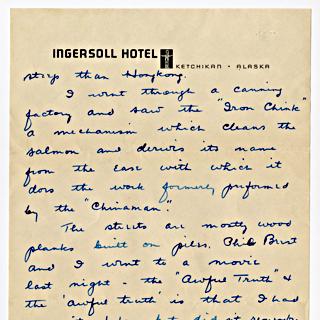 INGERSOLL HOTEL
KETCHIKAN • ALASKA
steps than Hongkong.
I went through a canning
factory and saw the "Iron Chink"
a mechanism which cleans the
salmon and derives its name
from the ease with which it
does the work formerly preformed
by the "Chinaman."
The streets are mostly wood
planks built on piles. Brist
and I went to a movie
last night - the "Awful Truth" &
the 'awful truth' is that I had